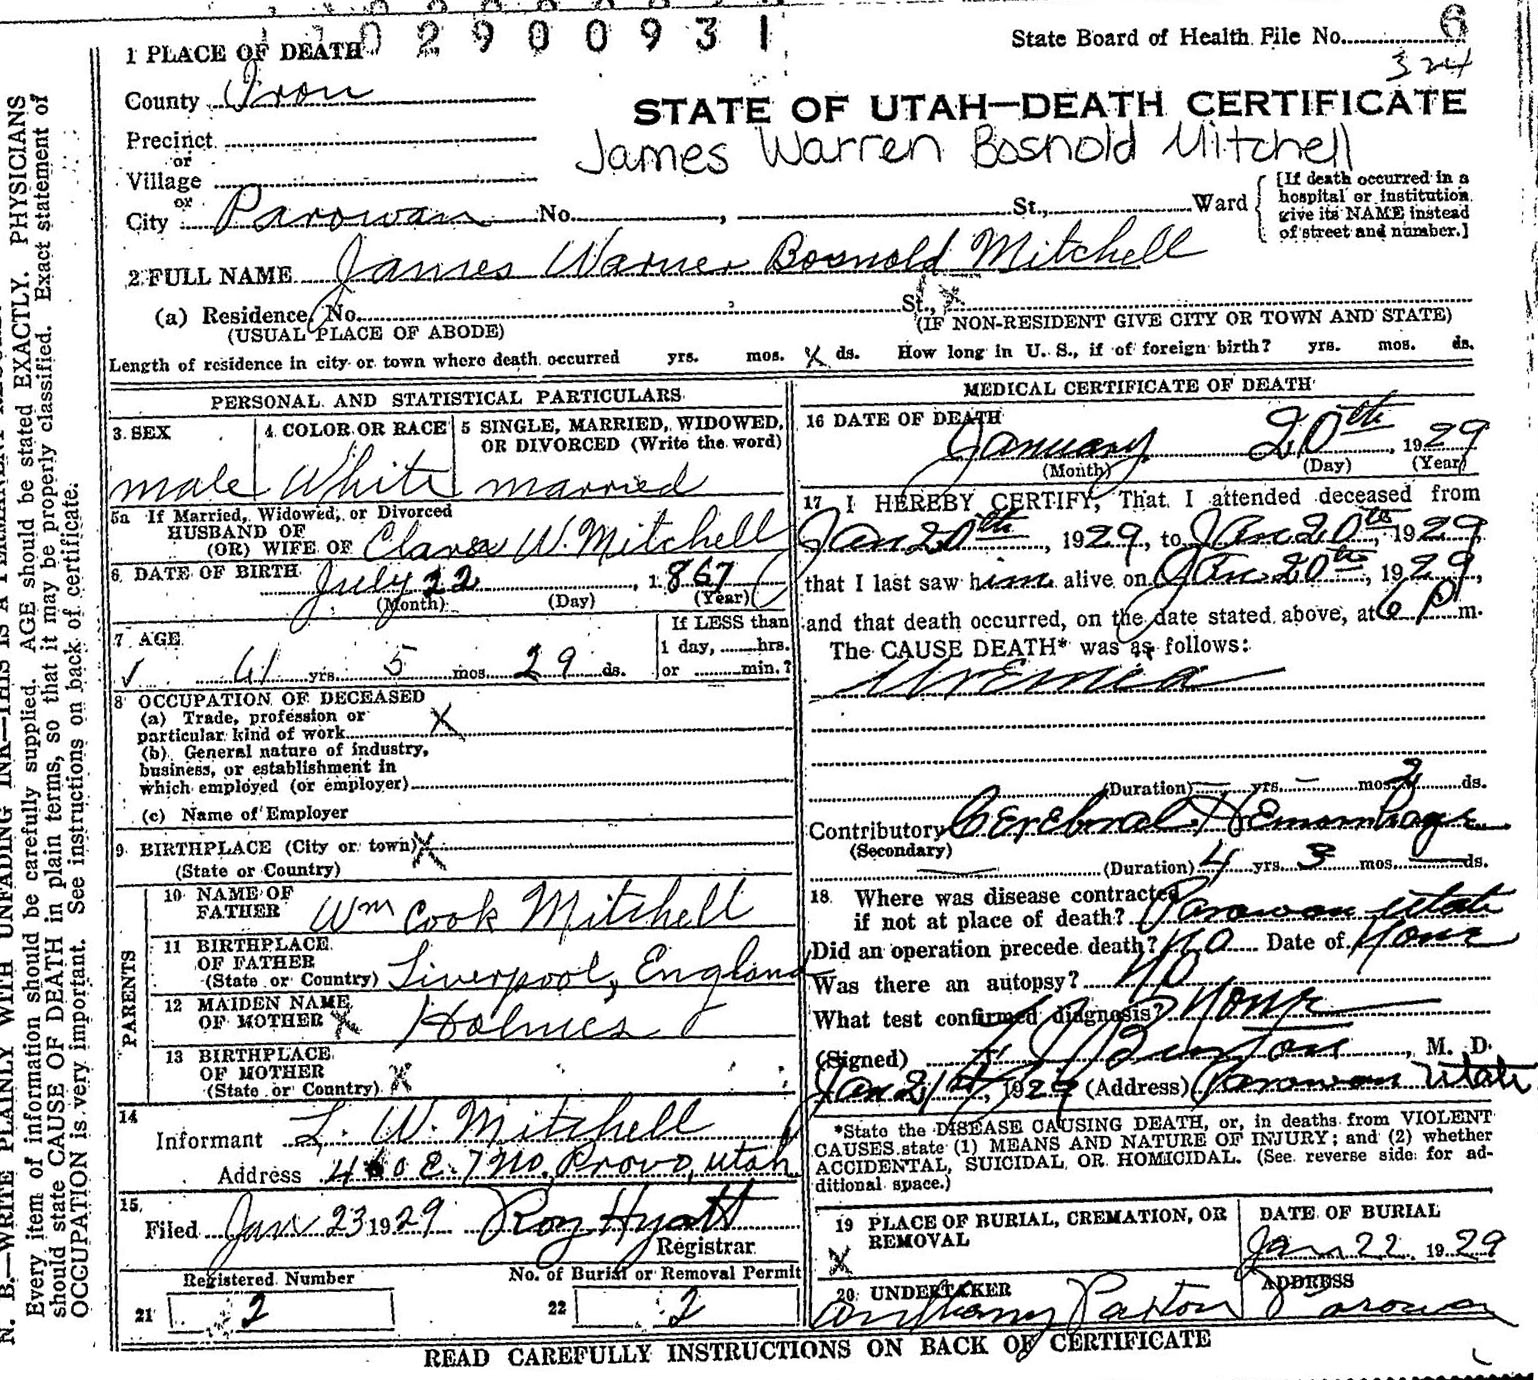 2900931
1 PLACE OF DEATH
State Board of Health File No. 6
324
County Iron
STATE OF UTAH—DEATH CERTIFICATE
Precinct
or
James Warren Bosnold Mitchell
Village
or
City Parowan No. , St., Ward
[If death occurred in a
hospital or institution
give its NAME instead
of street and number.]
2 FULL NAME James Warner Bosnold Mitchell
(a) Residence. No. St., x
(USUAL PLACE OF ABODE) (IF NON-RESIDENT GIVE CITY OR TOWN AND STATE)
Length of residence in city or town where death occurred yrs. mos. x ds. How long in U. S., if of foreign birth? yrs. mos. ds.
PERSONAL AND STATISTICAL PARTICULARS
3 SEX
male
4 COLOR OR RACE
White
5 SINGLE, MARRIED, WIDOWED,
OR DIVORCED (Write the word)
married
5a If Married, Widowed, or Divorced
HUSBAND OF
(OR) WIFE OF W. Mitchell
6 DATE OF BIRTH July 22, 1867
(Month) (Day) (Year)
7 AGE
61 yrs. 5 mos. 29 ds.
If LESS than
1 day, hrs.
or min.?
8 OCCUPATION OF DECEASED
(a) Trade, profession or
particular kind of work x
(b) General nature of industry,
business, or establishment in
which employed (or employer)
(c) Name of Employer
9 BIRTHPLACE (City or town) x
(State or Country)
PARENTS
10 NAME OF
FATHER Wm Cook Mitchell
11 BIRTHPLACE
OF FATHER
(State or Country) Liverpool, England
12 MAIDEN NAME
OF MOTHER x Holmes
13 BIRTHPLACE
OF MOTHER
(State or Country) x
14
Informant L. W. Mitchell
Address 460 E. 7 No. Provo, Utah
15
Filed Jan 23 1929 Roy Hyatt
Registrar
Registered Number
21 2
No. of Burial or Removal Permit
22 2
MEDICAL CERTIFICATE OF DEATH
16 DATE OF DEATH
January 20th, 1929
(Month) (Day) (Year)
17 I HEREBY CERTIFY, That I attended deceased from
Jan 20th, 1929, to Jan 20th, 1929,
that I last saw him alive on Jan 20th, 1929,
and that death occurred, on the date stated above, at 6 p m.
The CAUSE DEATH* was as follows:
Uremia
(Duration) — yrs. — mos. 2 ds.
Contributory Cerebral Hemorrhage
(Secondary)
(Duration) 4 yrs. 3 mos. — ds.
18. Where was disease contracted
if not at place of death? Parowan Utah
Did an operation precede death? No Date of None
Was there an autopsy? No
What test confirmed diagnosis? None
(Signed) Burton, M. D.
Jan 21st, 1929 (Address) Parowan Utah
*State the DISEASE CAUSING DEATH, or, in deaths from VIOLENT
CAUSES state (1) MEANS AND NATURE OF INJURY; and (2) whether
ACCIDENTAL, SUICIDAL OR HOMICIDAL. (See reverse side for ad-
ditional space.)
19 PLACE OF BURIAL, CREMATION, OR
REMOVAL
x
DATE OF BURIAL
Jan 22 1929
20 UNDERTAKER
Anthony Paxton
ADDRESS
Parowan
READ CAREFULLY INSTRUCTIONS ON BACK OF CERTIFICATE
N. B.—WRITE PLAINLY WITH UNFADING INK—THIS IS A PERMANENT
Every item of information should be carefully supplied. AGE should be stated EXACTLY. PHYSICIANS
should state CAUSE OF DEATH in plain terms, so that it may be properly classified. Exact statement of
OCCUPATION is very important. See instructions on back of certificate.